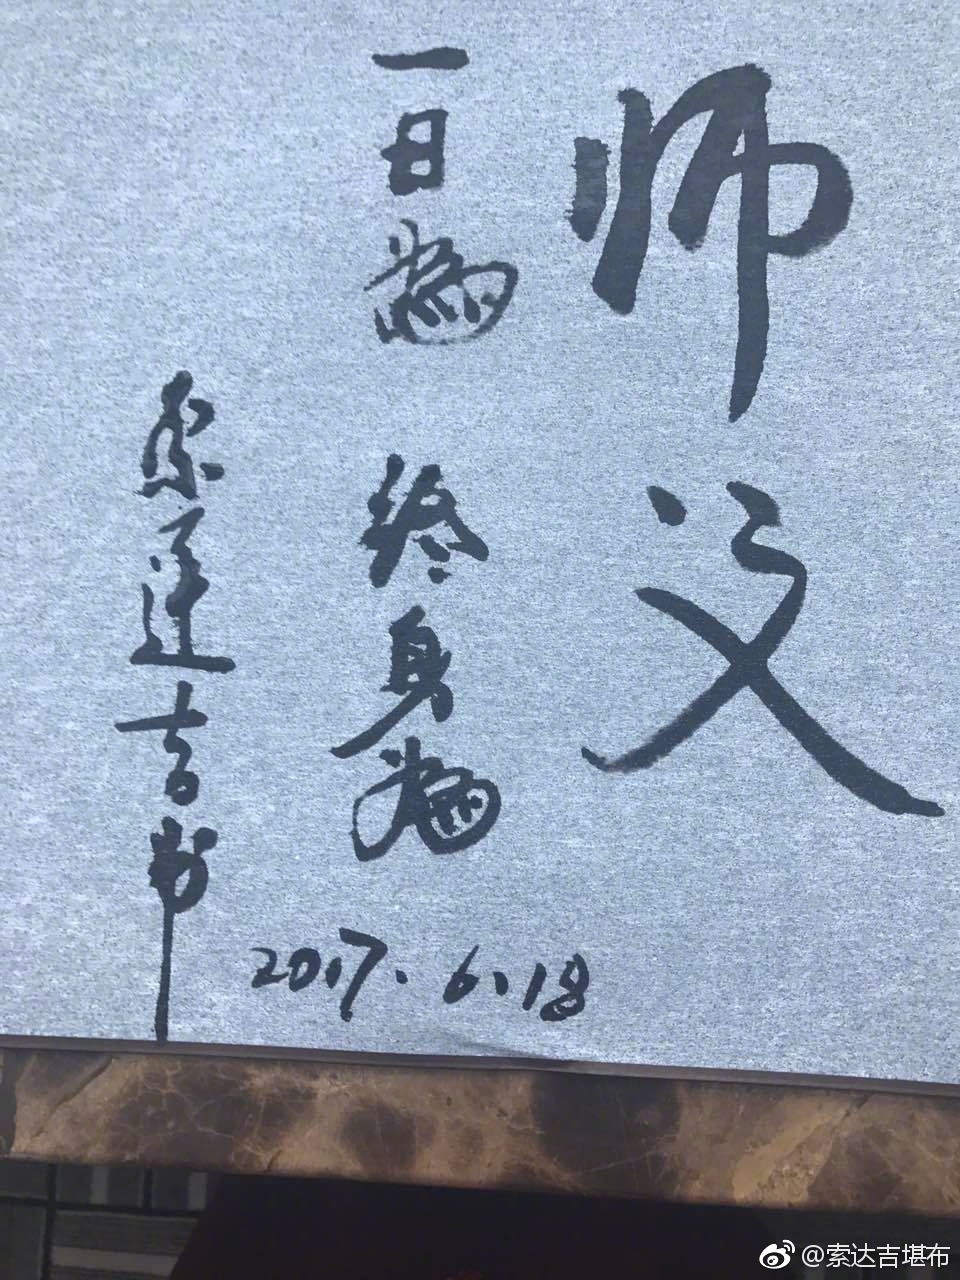 师父
一日為
终身為
索达吉书
2017.6.18
@索达吉堪布